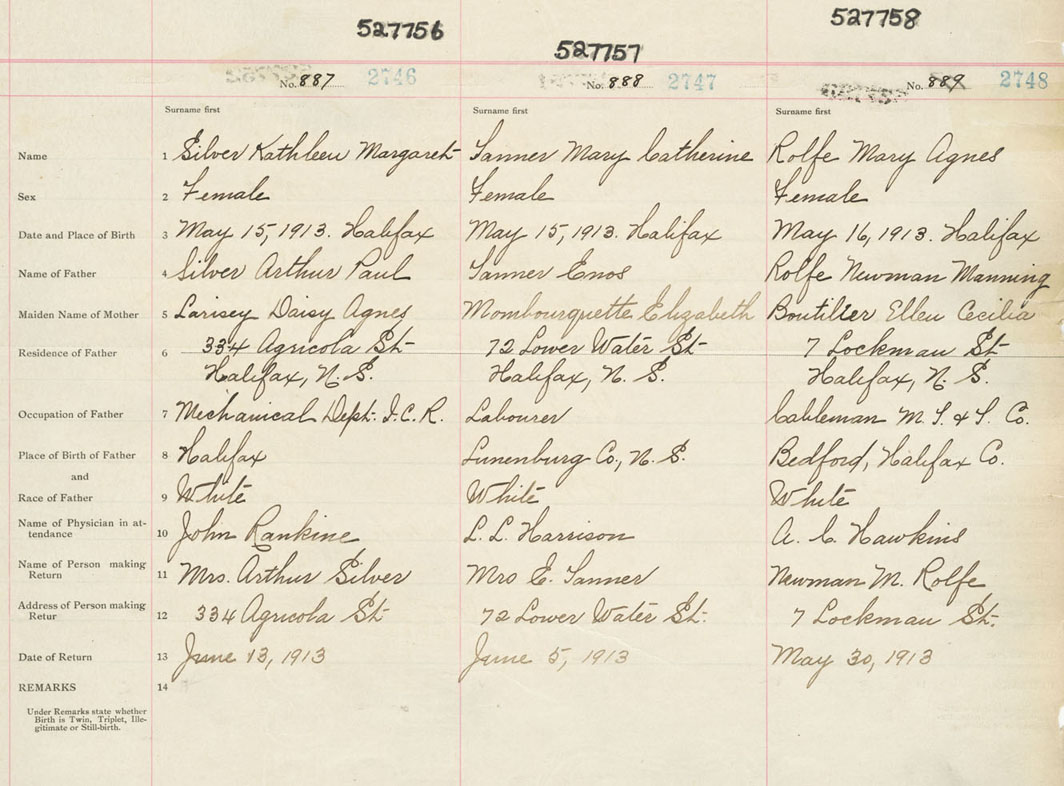 527756
527757
527758
No. 887 2746
No. 888 2747
No. 889 2748
Surname first Surname first Surname first
Name 1 Silver Kathleen Margaret Tanner Mary Catherine Rolfe Mary Agnes
Sex 2 Female Female Female
Date and Place of Birth 3 May 15, 1913. Halifax May 15, 1913. Halifax May 16, 1913. Halifax
Name of Father 4 Silver Arthur Paul Tanner Enos Rolfe Newman Manning
Maiden Name of Mother 5 Larisey Daisy Agnes Mombourquette Elizabeth Boutilier Ellen Cecilia
Residence of Father 6 334 Agricola St 72 Lower Water St 7 Lockman St
Halifax, N. S. Halifax, N. S. Halifax, N. S.
Occupation of Father 7 Mechanical Dept. I.C.R. Labourer Cableman M. T. & T. Co.
Place of Birth of Father 8 Halifax Lunenburg Co., N. S. Bedford, Halifax Co.
and
Race of Father 9 White White White
Name of Physician in at-
tendance 10 John Rankine L. L. Harrison A. C. Hawkins
Name of Person making
Return 11 Mrs. Arthur Silver Mrs E. Tanner Newman M. Rolfe
Address of Person making
Retur 12 334 Agricola St 72 Lower Water St. 7 Lockman St.
Date of Return 13 June 13, 1913 June 5, 1913 May 30, 1913
REMARKS 14
Under Remarks state whether
Birth is Twin, Triplet, Ille-
gitimate or Still-birth.